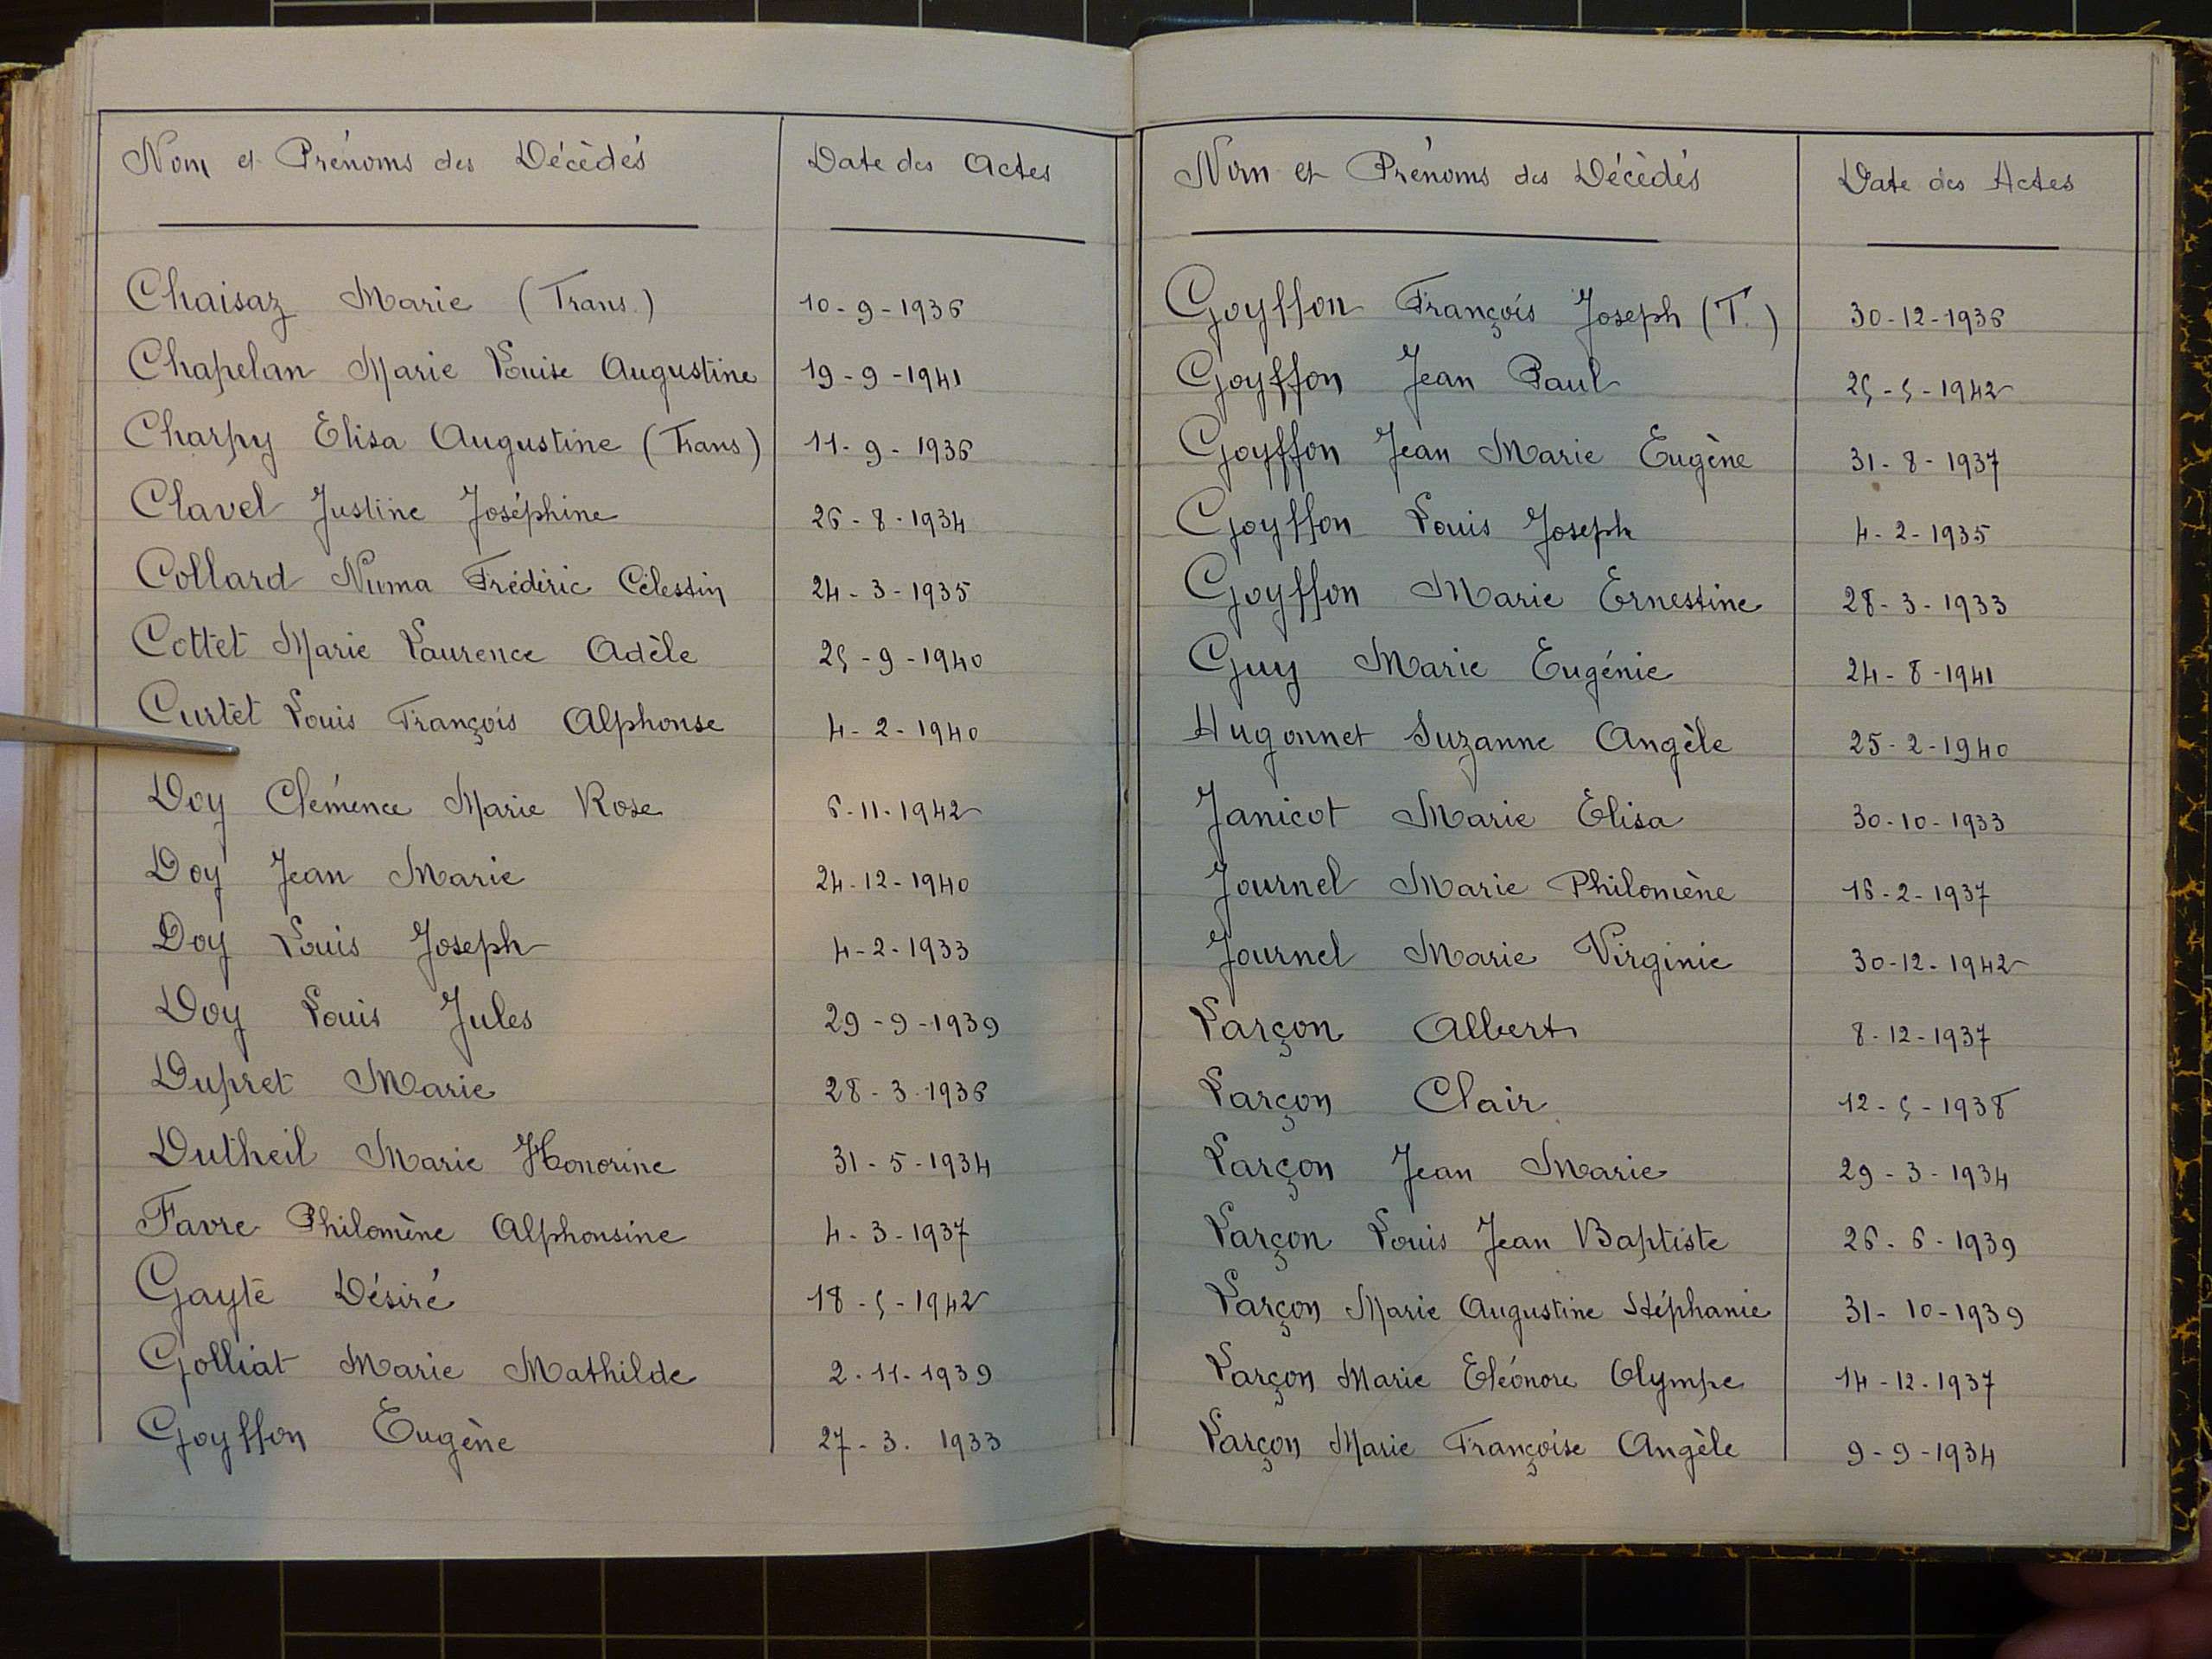 Nom et Prénoms des Décédés Date des Actes
Chaisaz Marie (Trans.) 10-9-1936
Chapelan Marie Louise Augustine 19-9-1941
Charpy Elisa Augustine (Trans) 11-9-1936
Clavel Justine Joséphine 26-8-1934
Collard Numa Frédéric Célestin 24-3-1935
Cottet Marie Laurence Adèle 25-9-1940
Curtet Louis François Alphonse 4-2-1940
Doy Clémence Marie Rose 6-11-1942
Doy Jean Marie 24-12-1940
Doy Louis Joseph 4-2-1933
Doy Louis Jules 29-9-1939
Dupret Marie 28-3-1936
Dutheil Marie Honorine 31-5-1934
Favre Philomène Alphonsine 4-3-1937
Gayte Désiré 18-5-1942
Golliat Marie Mathilde 2-11-1939
Goyffon Eugène 27-3. 1933
Nom et Prénoms des Décédés Date des Actes
Goyffon François Joseph (T.) 30-12-1936
Goyffon Jean Paul 25-5-1942
Goyffon Jean Marie Eugène 31-8-1937
Goyffon Louis Joseph 4-2-1935
Goyffon Marie Ernestine 28-3-1933
Guy Marie Eugénie 24-8-1941
Hugonnet Suzanne Angèle 25-2-1940
Janicot Marie Elisa 30-10-1933
Journel Marie Philomène 16-2-1937
Journel Marie Virginie 30-12-1942
Larçon Albert 8-12-1937
Larçon Clair 12-5-1938
Larçon Jean Marie 29-3-1934
Larçon Louis Jean Baptiste 26-6-1939
Larçon Marie Augustine Stéphanie 31-10-1939
Larçon Marie Eléonore Olympe 14-12-1937
Larçon Marie Françoise Angèle 9-9-1934